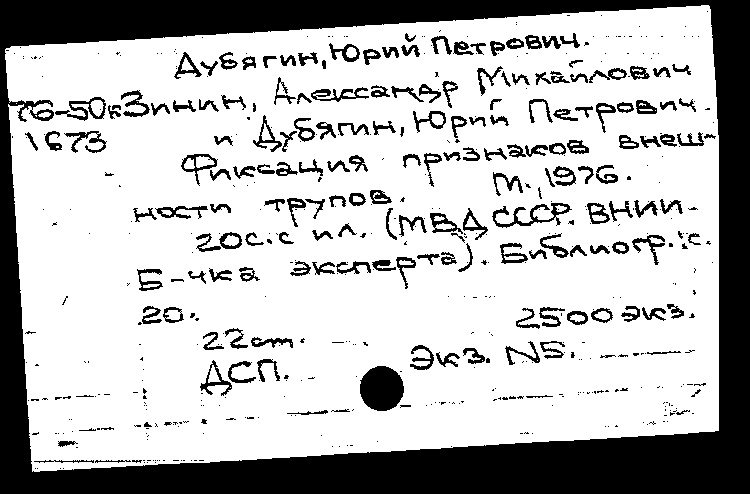 Дубягин, Юрий Петрович.
76-50к Зинин, Александр Михайлович
1673 и Дубягин, Юрий Петрович.
Фиксация признаков внеш-
ности трупов. М., 1976.
20с. с ил. (МВД СССР. ВНИИ.
Б-чка эксперта). Библиогр.: с.
20.
2500 экз.
22 cm.
ДСП. Экз. N5.